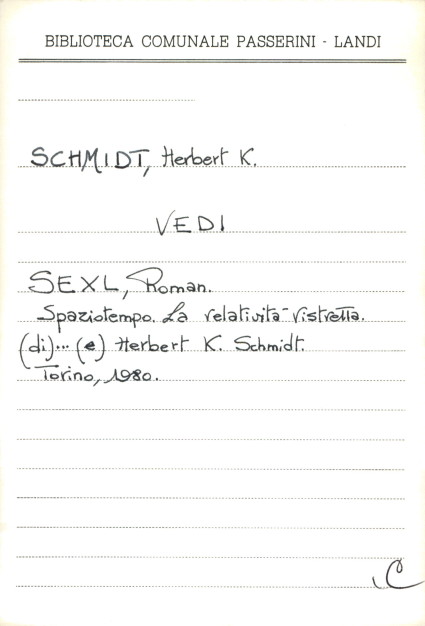 BIBLIOTECA COMUNALE PASSERINI - LANDI
SCHMIDT, Herbert K.
VEDI
SEXL, Roman.
Spaziotempo. La relatività ristretta.
(di)... (e) Herbert K. Schmidt.
Torino, 1980.
C